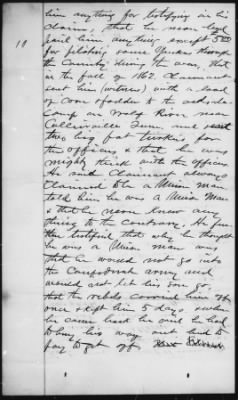 him anything for testifying in his
claim, that he never
paid him anything except 5.00
for piloting some Yankees through
the Country during the war, that
10
in the fall of 1862 Claimant
sent him (witness) with a load
of corn & fodder to the
Camp on River near
Collierville Tenn. and sent
two big fat turkies for
the officers & that he was
mighty thick with the officers.
He said Claimant always
claimed to be a Union man
told him he was a Union Man
& that he never knew any
thing to the contrary. He fur-
ther testified that why he thought
he was a Union man was
that he would not go into
the Confederate army and
would not let his son go,
that the rebels carried him off
once & kept him 5 days, when
he came back he said he had
to buy his way out had to
pay to get off